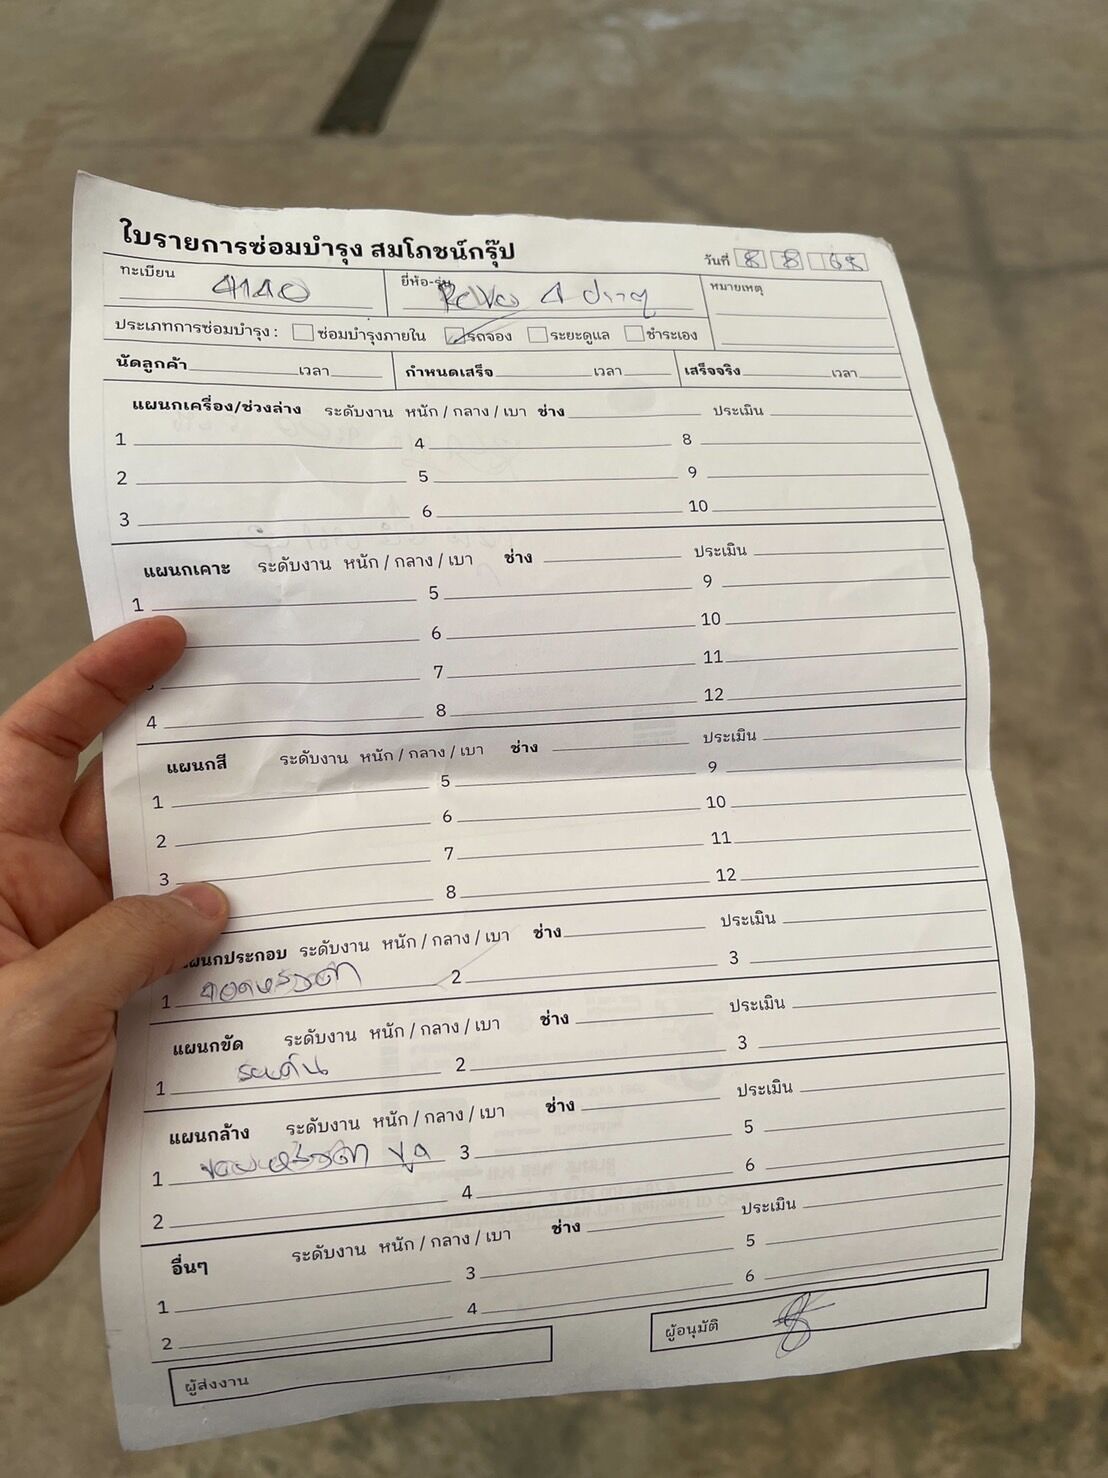 ใบรายการซ่อมบำรุง สมโภชน์กรุ๊ป
วันที่ 8 8 68
ทะเบียน 4140 ยี่ห้อ-รุ่น Revo 4 ประตู หมายเหตุ
ประเภทการซ่อมบำรุง : ซ่อมบำรุงภายใน รถจอง ระยะดูแล ชำระเอง
นัดลูกค้า เวลา กำหนดเสร็จ เวลา เสร็จจริง เวลา
แผนกเครื่อง/ช่วงล่าง ระดับงาน หนัก / กลาง / เบา ช่าง ประเมิน
1 4 8
2 5 9
3 6 10
แผนกเคาะ ระดับงาน หนัก / กลาง / เบา ช่าง ประเมิน
1 5 9
6 10
7 11
4 8 12
แผนกสี ระดับงาน หนัก / กลาง / เบา ช่าง ประเมิน
1 5 9
2 6 10
3 7 11
8 12
แผนกประกอบ ระดับงาน หนัก / กลาง / เบา ช่าง ประเมิน
1 2 3
แผนกขัด ระดับงาน หนัก / กลาง / เบา ช่าง ประเมิน
1 2 3
แผนกล้าง ระดับงาน หนัก / กลาง / เบา ช่าง ประเมิน
1 3 5
2 4 6
อื่นๆ ระดับงาน หนัก / กลาง / เบา ช่าง ประเมิน
1 3 5
2 4 6
ผู้ส่งงาน ผู้อนุมัติ